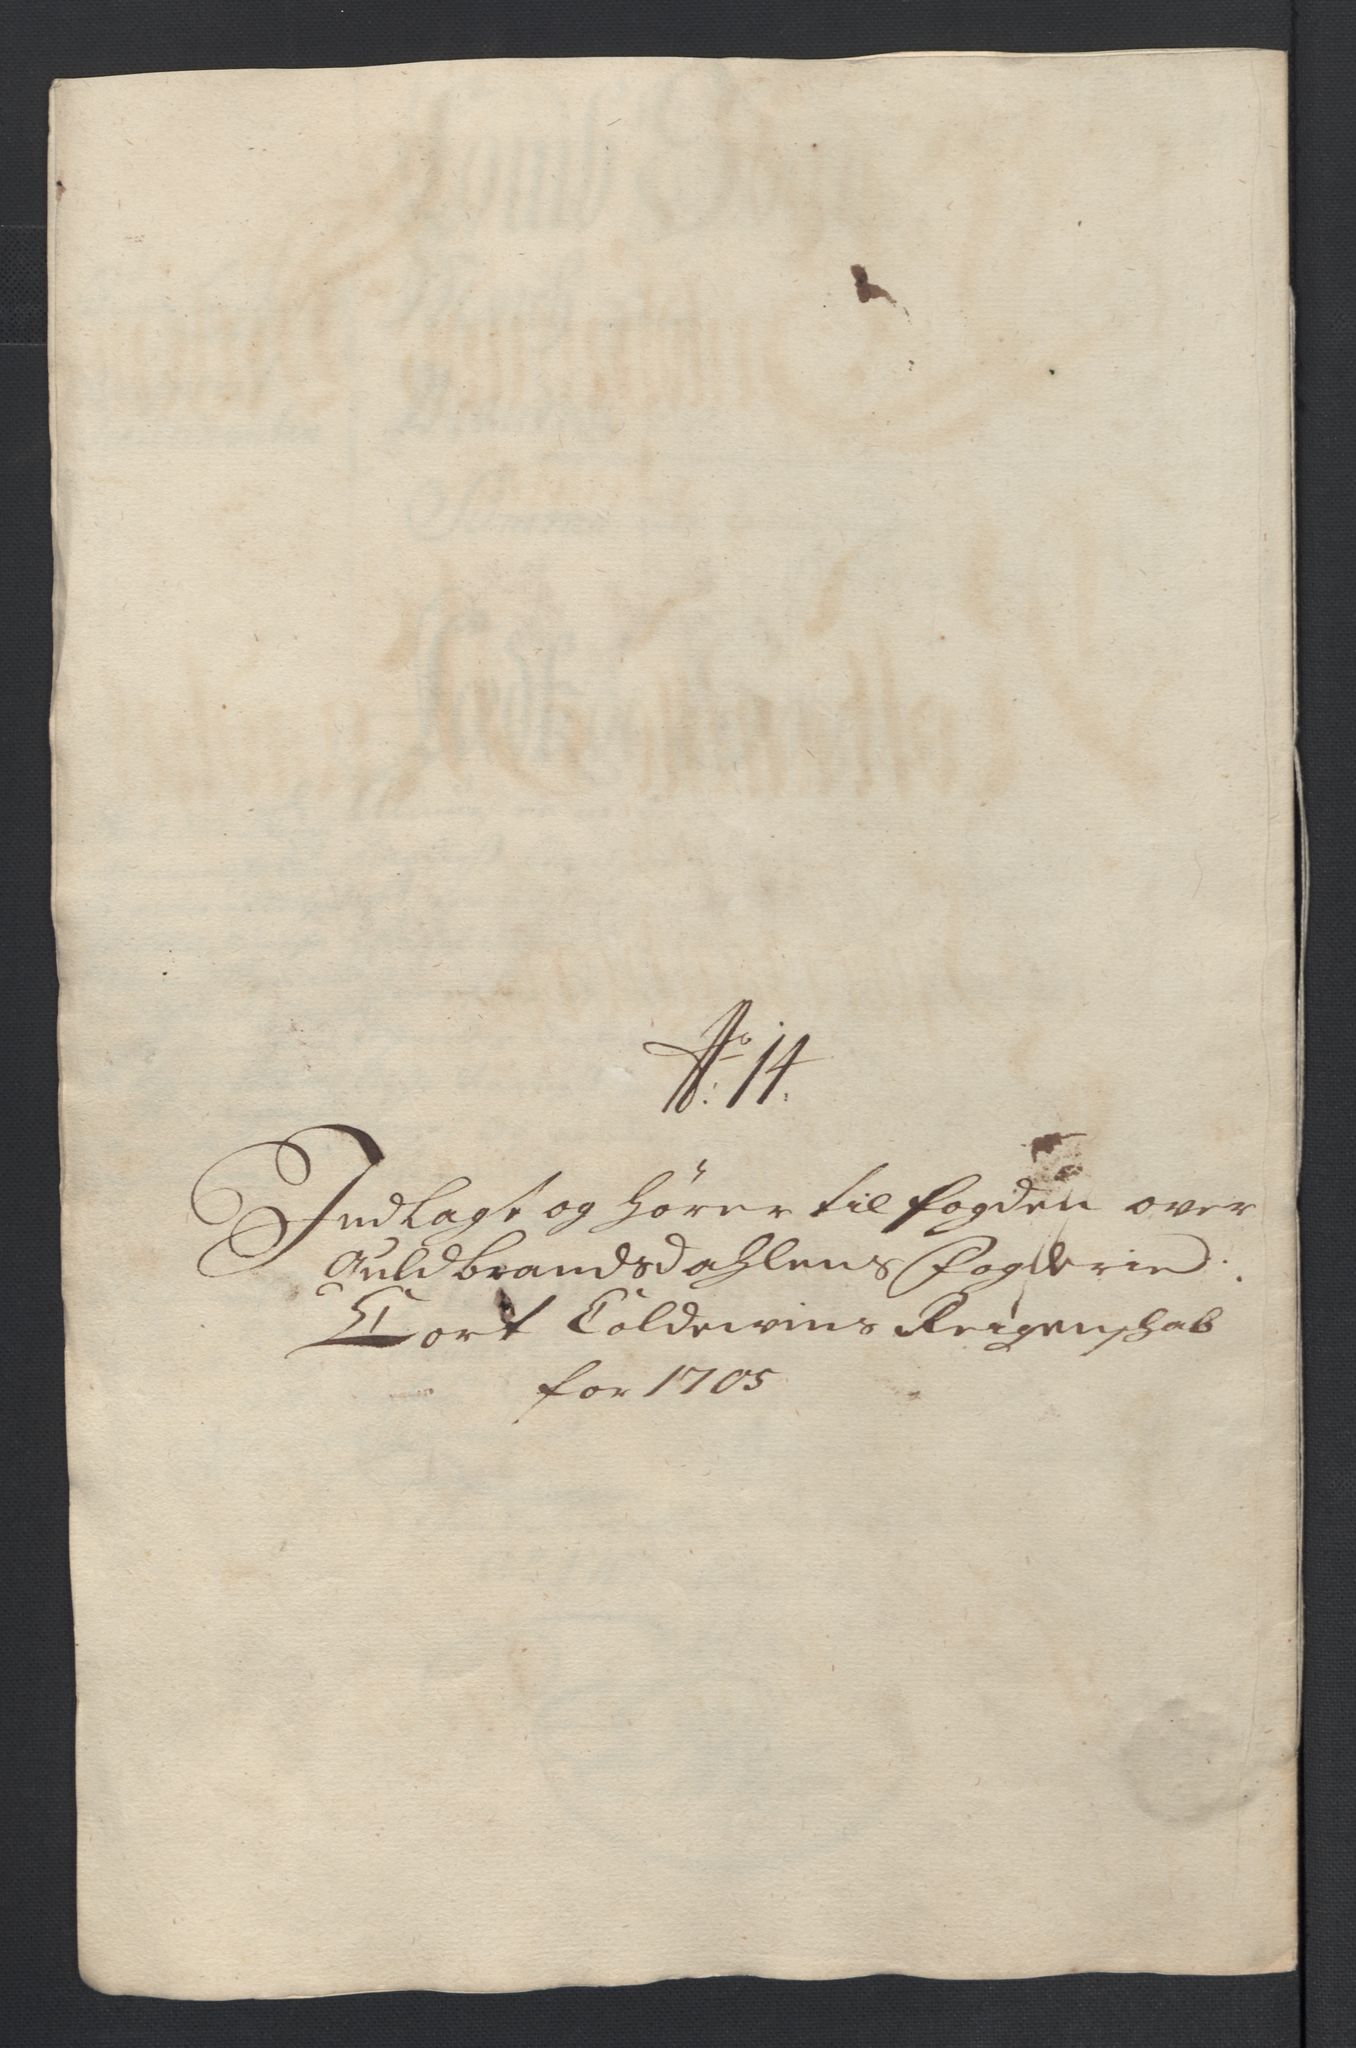 No: 14.
Indlagt og hører til fogden over
Guldbrandsdahlens Fogderie.
Cort Coldewins Reigenschab
for 1705